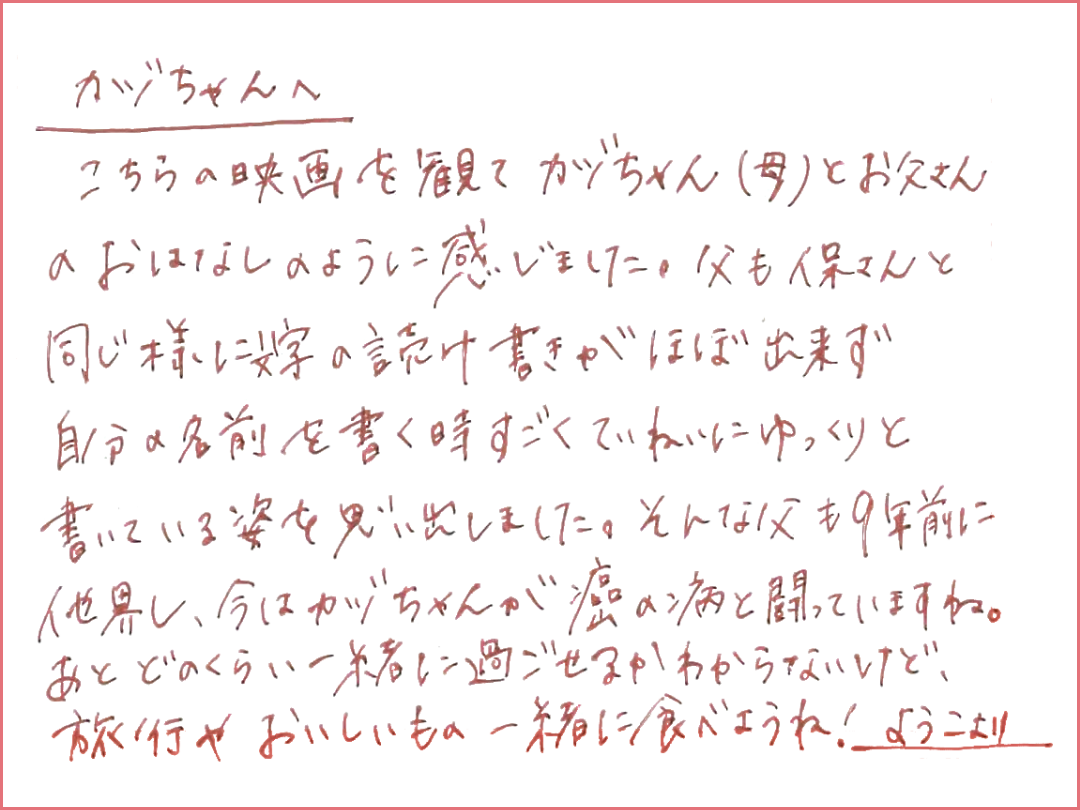 カヅちゃんへ
こちらの映画を観て カヅちゃん(母)とお父さん
の おはなしのように感じました。父も保さんと
同じ様に文字の読け書きがほぼ出来ず
自分の名前を書く時すごくていねいにゆっくりと
書いている姿を思い出しました。そんな父も9年前に
他界し、今はカヅちゃんが癌の病と闘っていますね。
あと どのくらい一緒に過ごせるかわからないけど、
旅行や おいしいもの 一緒に食べようね! ようこより